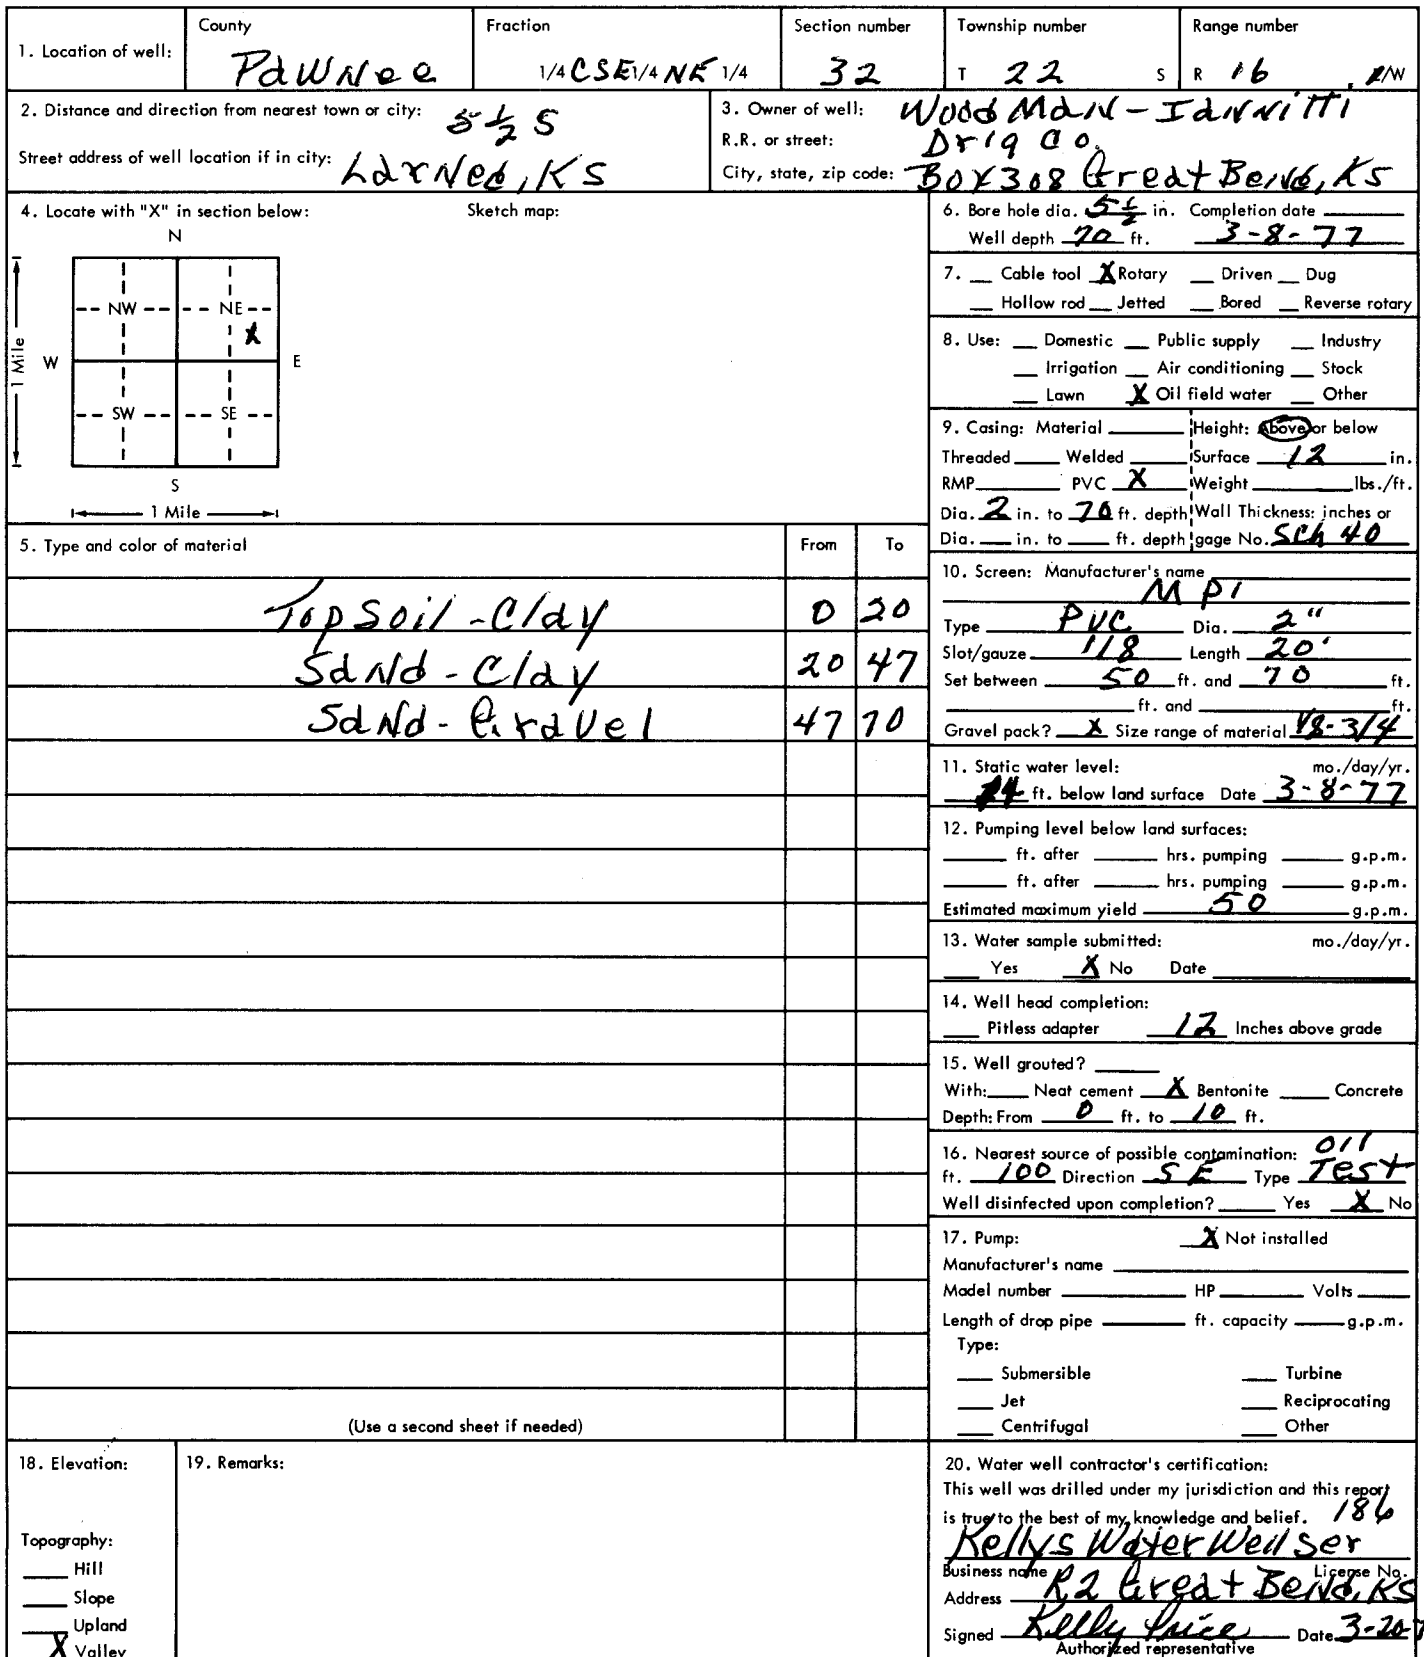 1. Location of well: County Pawnee Fraction 1/4 CSE 1/4 NE 1/4 Section number 32 Township number T 22 S Range number R 16 E/W
2. Distance and direction from nearest town or city: 5 1/2 S
Street address of well location if in city: Larned, KS
3. Owner of well: Woodman-Iannitti
R.R. or street: Drlg Co.
City, state, zip code: Box 308 Great Bend, KS
4. Locate with "X" in section below: Sketch map:
N
NW NE
X
W E
1 Mile
SW SE
S
1 Mile
5. Type and color of material From To
Top Soil - Clay 0 20
Sand - Clay 20 47
Sand - Gravel 47 70
(Use a second sheet if needed)
6. Bore hole dia. 5 1/2 in. Completion date
Well depth 70 ft. 3-8-77
7. Cable tool X Rotary Driven Dug
Hollow rod Jetted Bored Reverse rotary
8. Use: Domestic Public supply Industry
Irrigation Air conditioning Stock
Lawn X Oil field water Other
9. Casing: Material Height: Above or below
Threaded Welded Surface 12 in.
RMP PVC X Weight lbs./ft.
Dia. 2 in. to 70 ft. depth Wall Thickness: inches or
Dia. in. to ft. depth gage No. Sch 40
10. Screen: Manufacturer's name
MPI
Type PVC Dia. 2"
Slot/gauze 1/8 Length 20'
Set between 50 ft. and 70 ft.
ft. and ft.
Gravel pack? X Size range of material 1/8-3/4
11. Static water level: mo./day/yr.
ft. below land surface Date 3-8-77
12. Pumping level below land surfaces:
ft. after hrs. pumping g.p.m.
ft. after hrs. pumping g.p.m.
Estimated maximum yield 50 g.p.m.
13. Water sample submitted: mo./day/yr.
Yes X No Date
14. Well head completion:
Pitless adapter 12 Inches above grade
15. Well grouted?
With: Neat cement X Bentonite Concrete
Depth: From 0 ft. to 10 ft.
16. Nearest source of possible contamination: Oil
ft. 100 Direction SE Type Test
Well disinfected upon completion? Yes X No
17. Pump: X Not installed
Manufacturer's name
Model number HP Volts
Length of drop pipe ft. capacity g.p.m.
Type:
Submersible Turbine
Jet Reciprocating
Centrifugal Other
18. Elevation:
Topography:
Hill
Slope
Upland
X Valley
19. Remarks:
20. Water well contractor's certification:
This well was drilled under my jurisdiction and this report
is true to the best of my knowledge and belief. 186
Kellys Water Well Ser
Business name License No.
Address R2 Great Bend, KS
Signed Kelly Price Date 3-20-7
Authorized representative